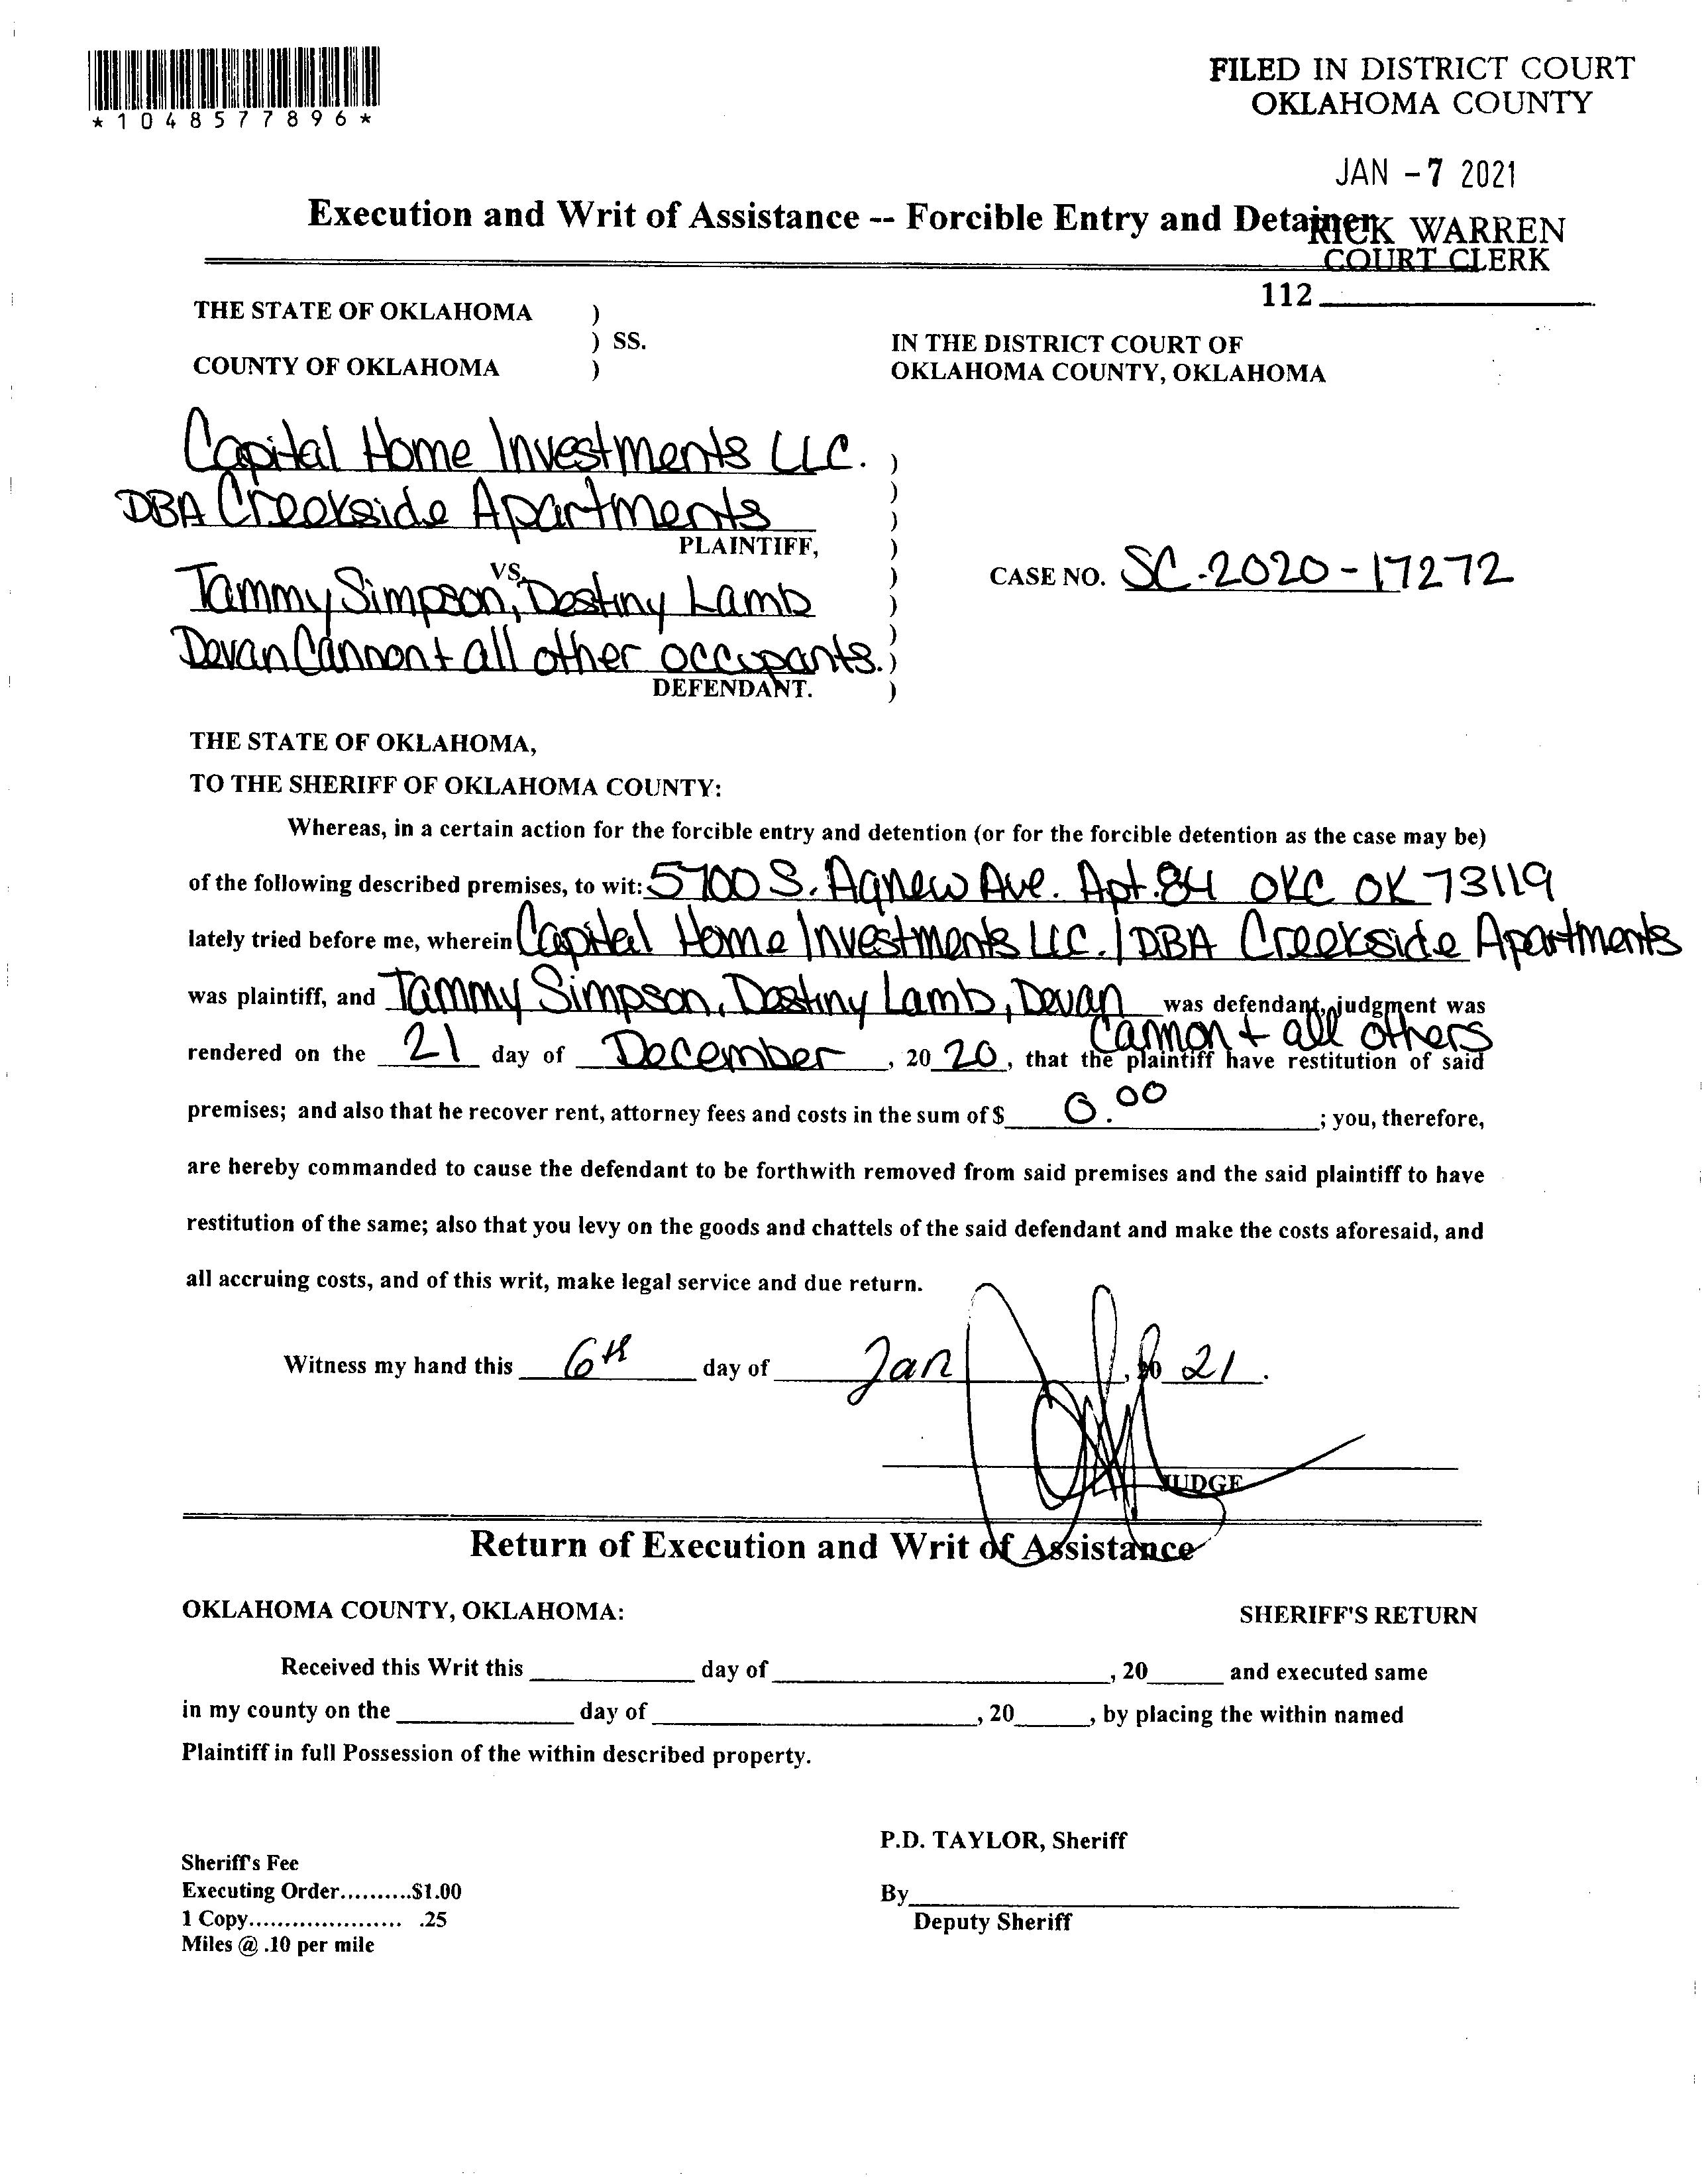 *1048577896*
FILED IN DISTRICT COURT
OKLAHOMA COUNTY
JAN -7 2021
Execution and Writ of Assistance -- Forcible Entry and Detainer
RICK WARREN
COURT CLERK
112
THE STATE OF OKLAHOMA )
) SS.
COUNTY OF OKLAHOMA )
IN THE DISTRICT COURT OF
OKLAHOMA COUNTY, OKLAHOMA
Capital Home Investments LLC. )
DBA Creekside Apartments )
)
PLAINTIFF, )
VS. )
Tammy Simpson, Destiny Lamb )
CASE NO. SC-2020-17272
)
Devan Cannon + all other occupants. )
DEFENDANT. )
THE STATE OF OKLAHOMA,
TO THE SHERIFF OF OKLAHOMA COUNTY:
Whereas, in a certain action for the forcible entry and detention (or for the forcible detention as the case may be)
of the following described premises, to wit: 5700 S. Agnew Ave. Apt. 84 OKC OK 73119
lately tried before me, wherein Capital Home Investments LLC. | DBA Creekside Apartments
was plaintiff, and Tammy Simpson, Destiny Lamb, Devan was defendant, judgment was
Cannon + all others
rendered on the 21 day of December, 20 20, that the plaintiff have restitution of said
premises; and also that he recover rent, attorney fees and costs in the sum of $ 0.00; you, therefore,
are hereby commanded to cause the defendant to be forthwith removed from said premises and the said plaintiff to have
restitution of the same; also that you levy on the goods and chattels of the said defendant and make the costs aforesaid, and
all accruing costs, and of this writ, make legal service and due return.
Witness my hand this 6th day of Jan, 20 21.
JUDGE
Return of Execution and Writ of Assistance
OKLAHOMA COUNTY, OKLAHOMA:
SHERIFF'S RETURN
Received this Writ this ____ day of ____, 20____ and executed same
in my county on the ____ day of ____, 20____, by placing the within named
Plaintiff in full Possession of the within described property.
P.D. TAYLOR, Sheriff
Sheriff's Fee
Executing Order..........$1.00
1 Copy..................... .25
Miles @ .10 per mile
By____
Deputy Sheriff